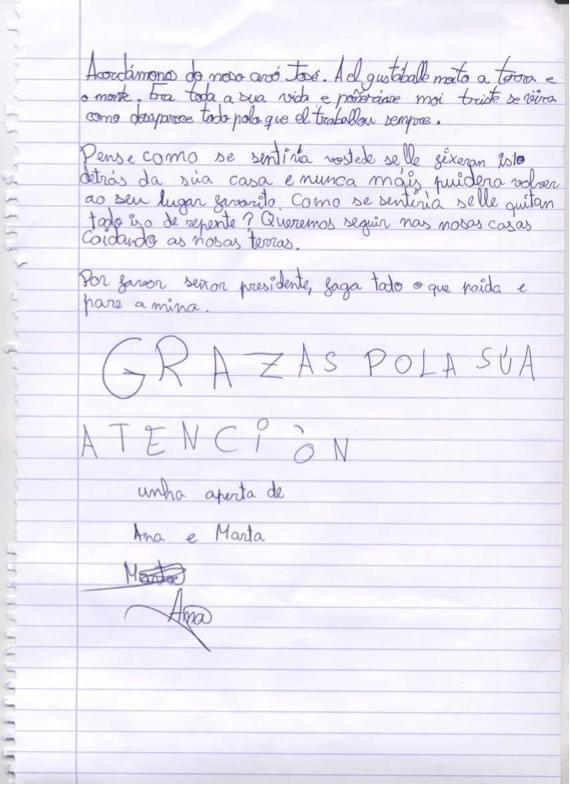 Acordámonos do noso avó José. A el gustáballe moito a terra e
o monte. Era toda a sua vida e poñeríase moi triste se vira
como desaparece todo polo que el traballou sempre.
Pense como se sentiría vostede se lle fixeran isto
detrás da súa casa e nunca máis puidera volver
ao seu lugar favorito. Como se sentiría se lle quitan
todo iso de repente? Queremos seguir nas nosas casas
Coidando as nosas terras.
Por favor señor presidente, faga todo o que poida e
pare a mina.
GRAZAS POLA SÚA
ATENCIÒN
unha aperta de
Ana e Marta
Marta
Ana